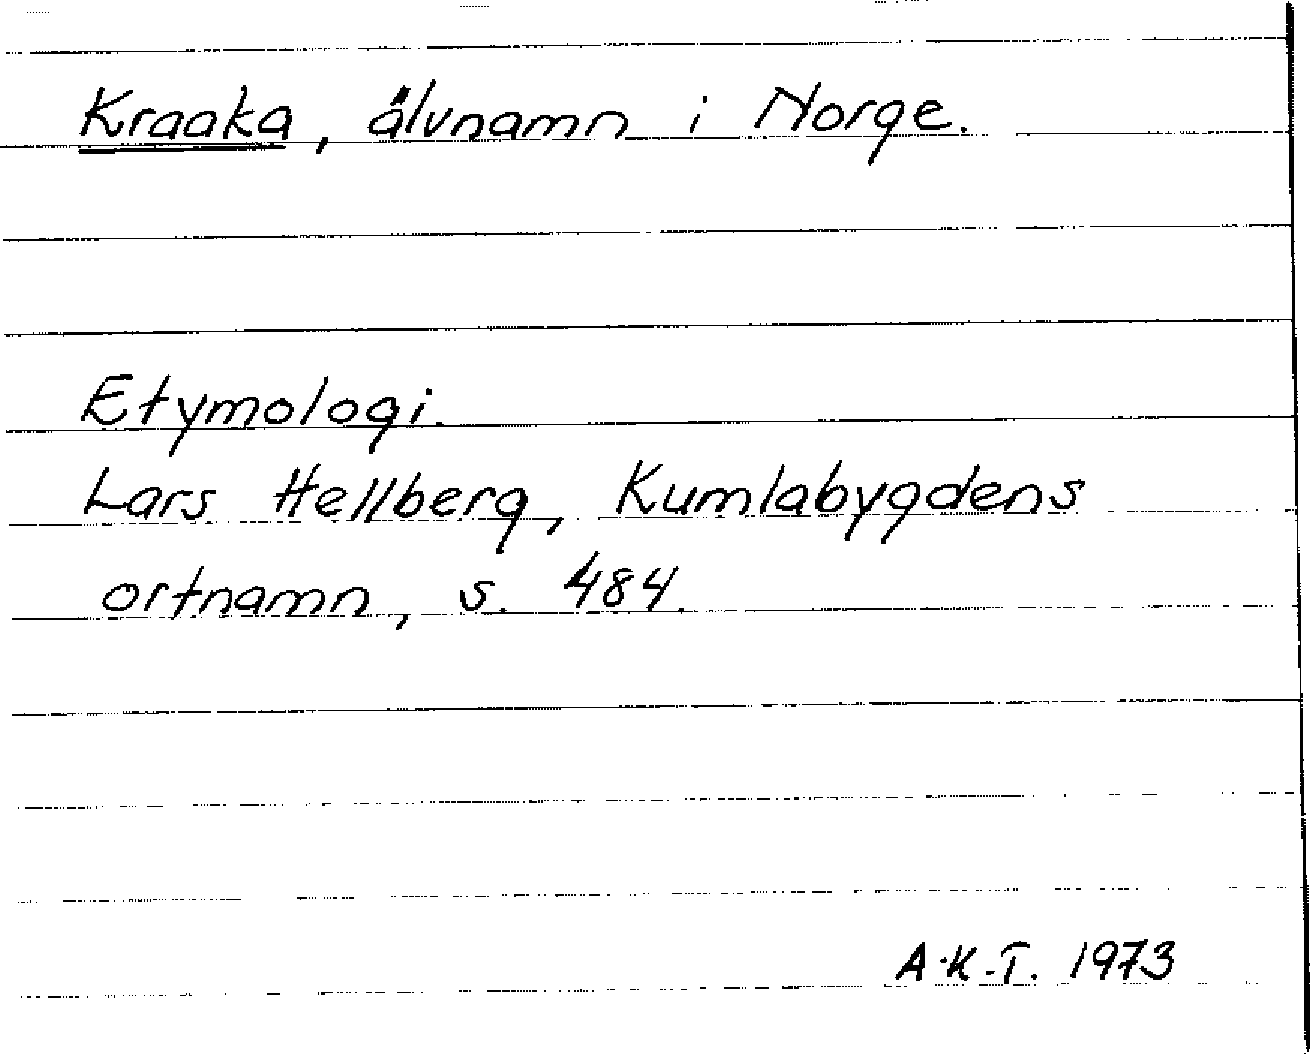 Kraaka, älvnamn i Norge.
Etymologi.
Lars Hellberg, Kumlabygdens
ortnamn, s. 484.
A.K.T. 1973